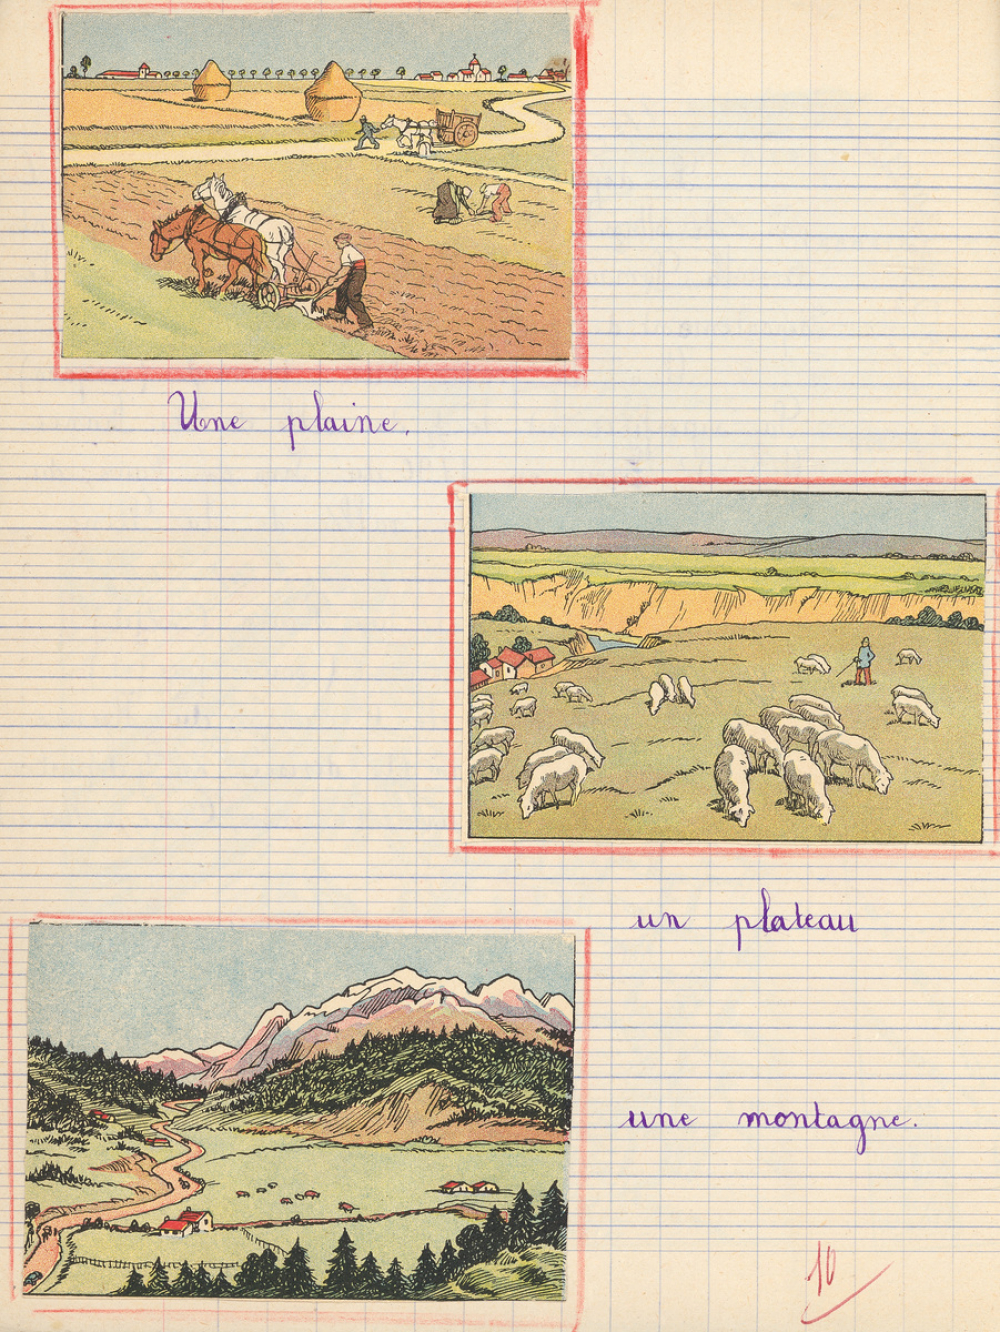 Une plaine.
un plateau
une montagne.
10